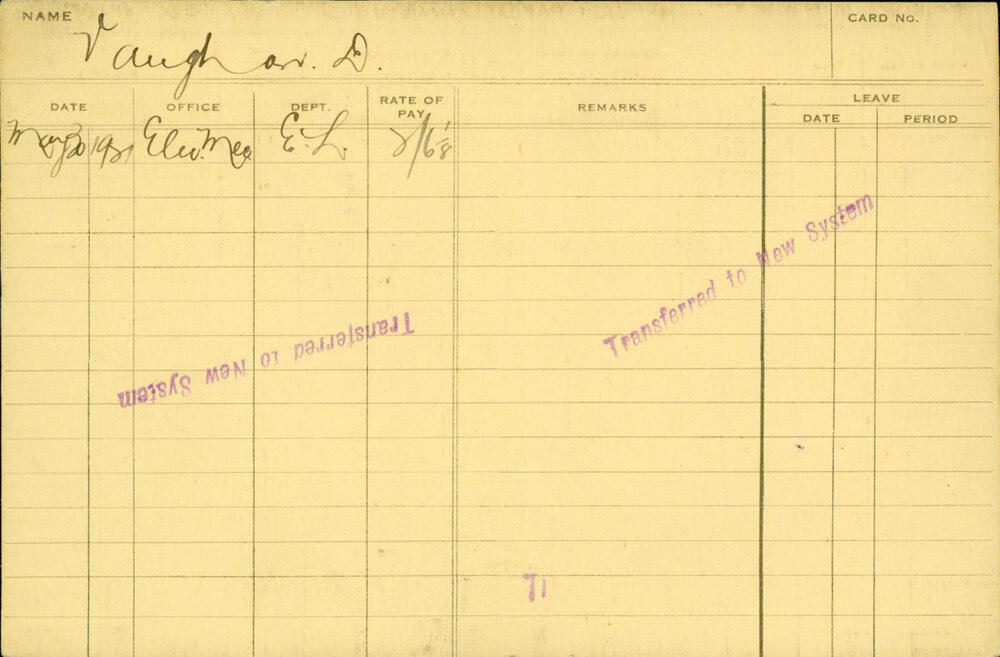 NAME
Vaughan. D.
CARD No.
DATE OFFICE DEPT. RATE OF PAY REMARKS LEAVE
DATE PERIOD
Elec. Mec E.L.
Transferred to New System
Transferred to New System
71